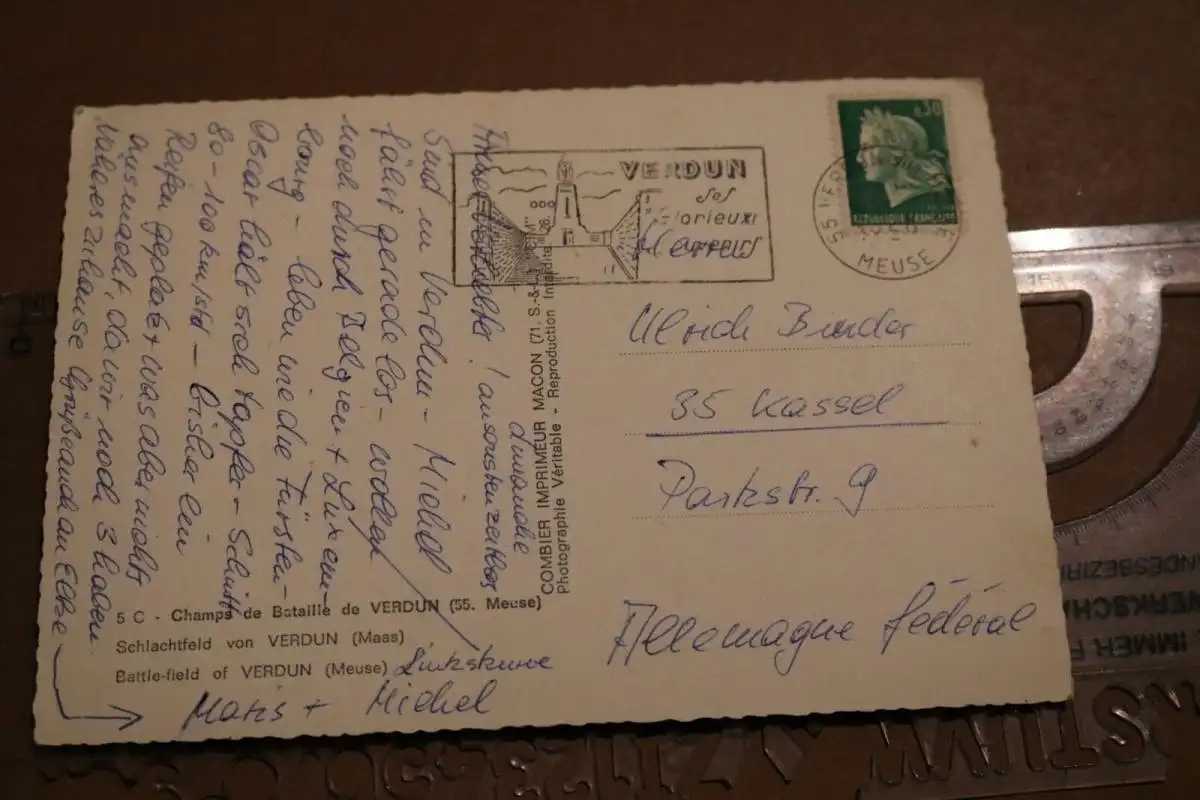 dimanche
ansonsten zeitlos
Sind in Verdun - Michel
fährt gerade los - wollen
noch durch Belgien + Luxem-
bourg - leben wie die Fürsten -
Oscar hält sich tapfer - Schnitt
80-100 km/std - bisher ein
Reifen geplatzt was aber nichts
ausmacht, da wir noch 3 haben.
Näheres zuhause Grüße auch an Elke
Linkskurve
Michel
5 C - Champs de Bataille de VERDUN (55. Meuse)
Schlachtfeld von VERDUN (Maas)
Battle-field of VERDUN (Meuse)
COMBIER IMPRIMEUR MACON (71. S.-&-L.) "CIM"
Photographie Véritable - Reproduction Interdite
VERDUN
ses
Glorieux
0,30
REPUBLIQUE FRANÇAISE
55 VERDUN
MEUSE
Herrn
Ulrich Binder
35 Kassel
Parkstr. 9
Allemagne fédéral
IMMER